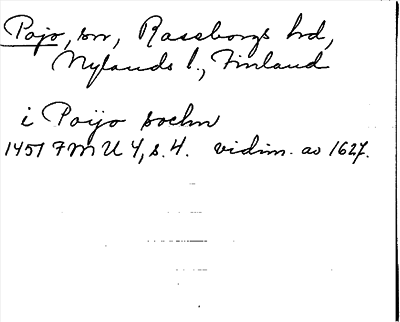 Pojo, sn, Raseborgs hd,
Nylands l., Finland
i Poijo sochn
1451 FMU 4, s. 4. vidim. av 1627.